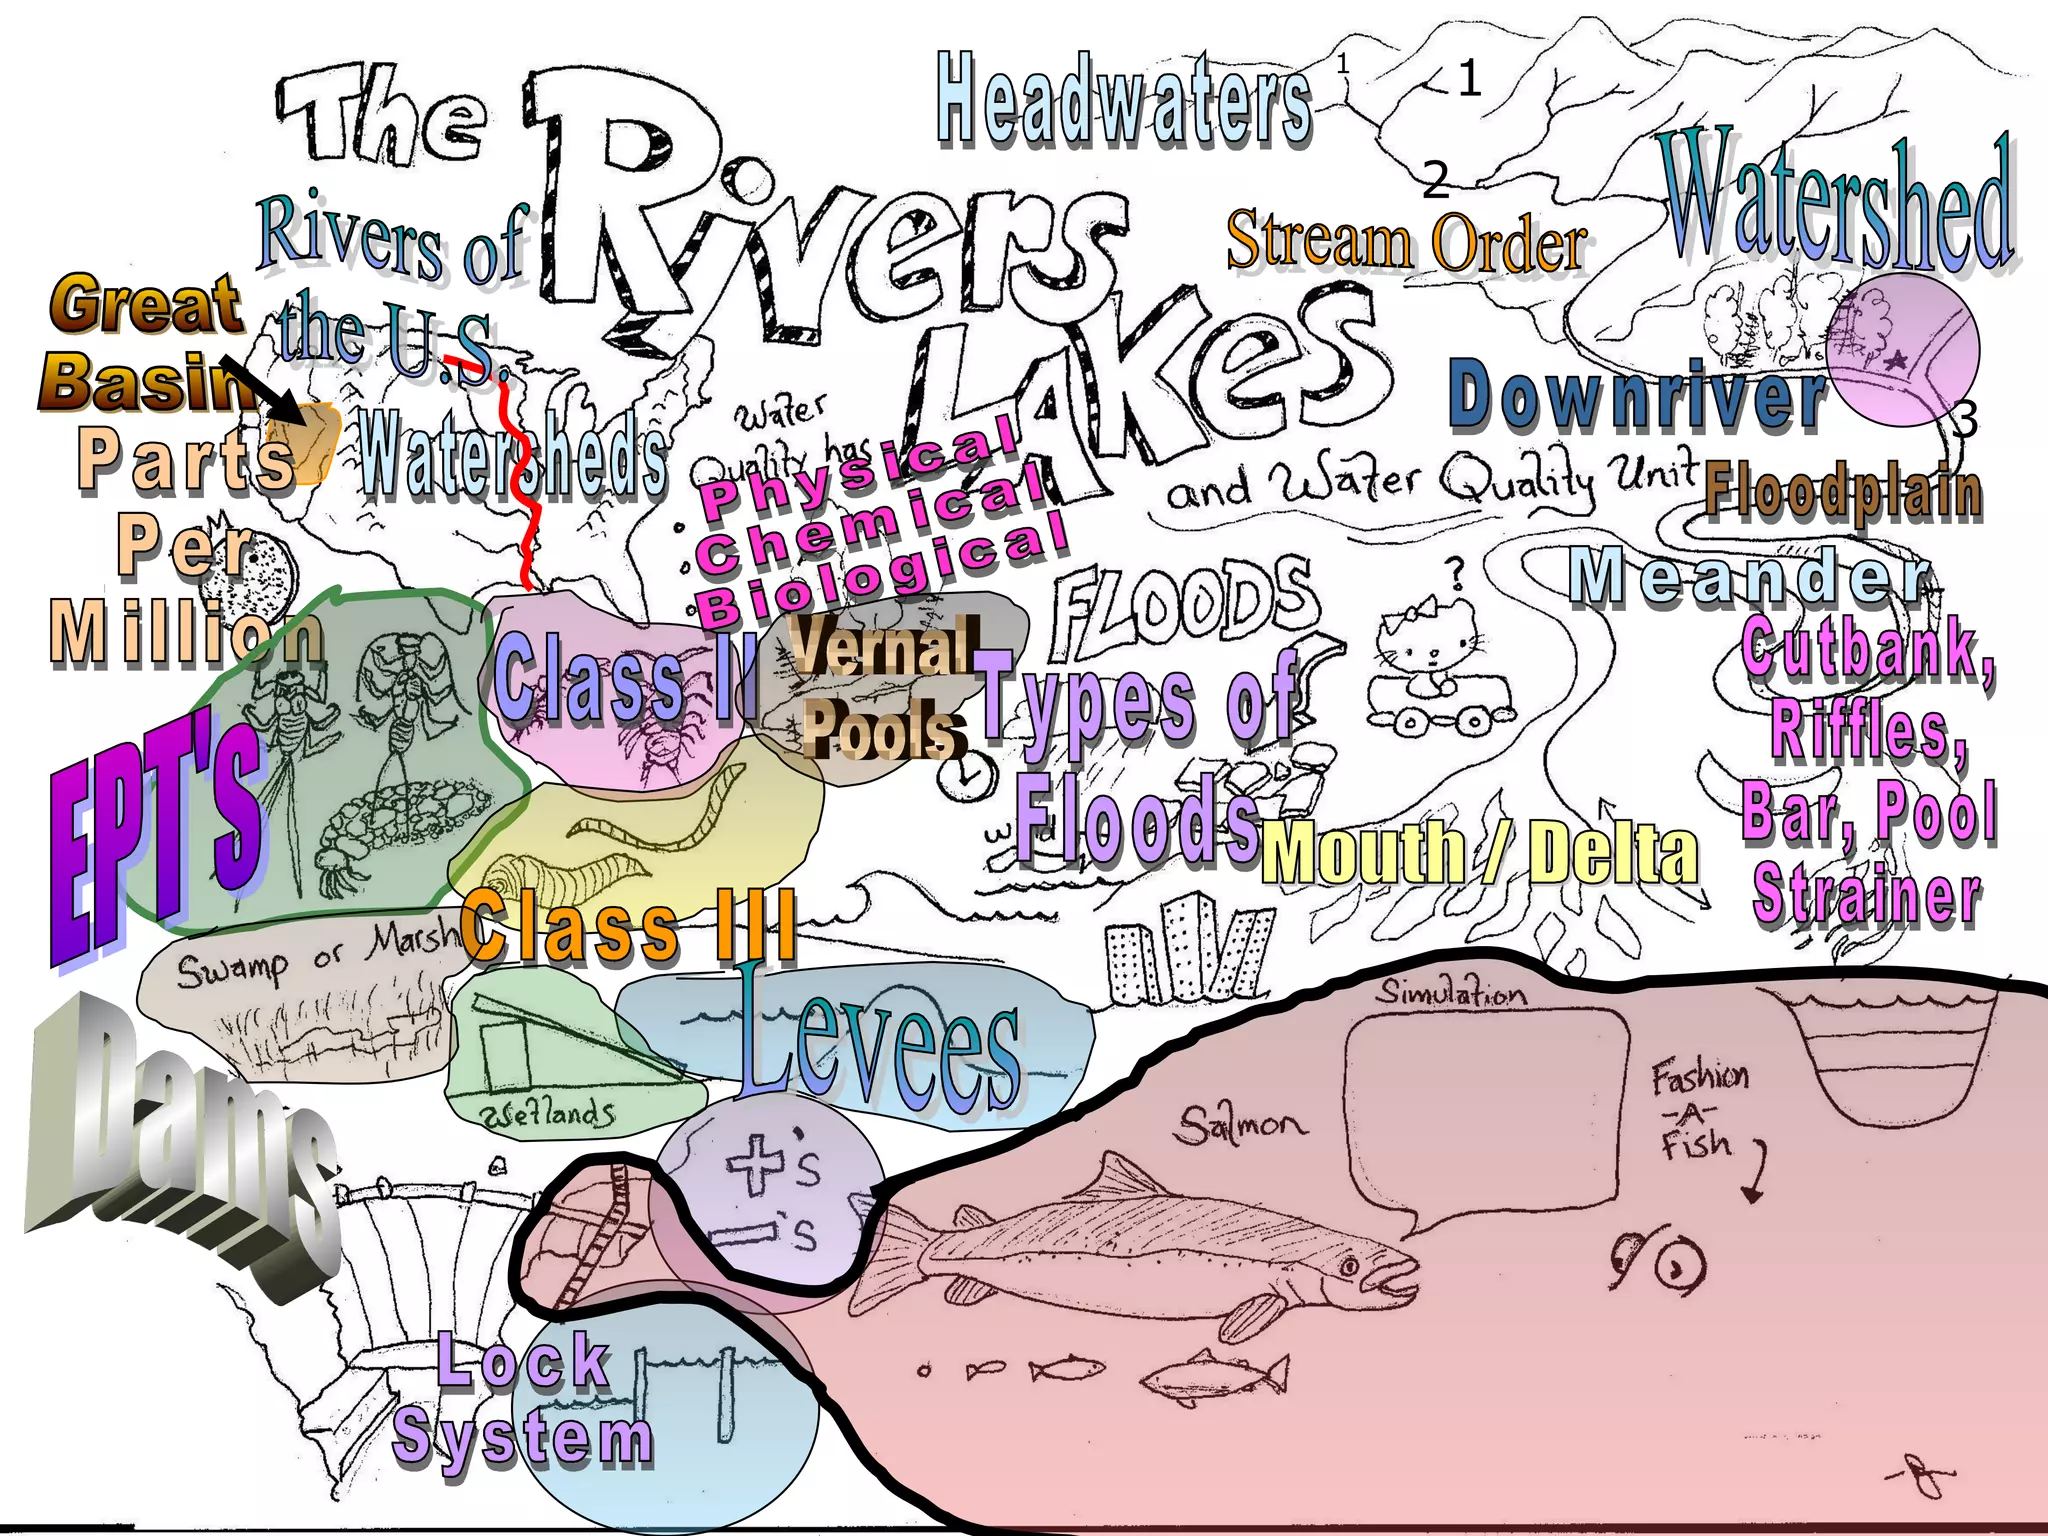 The Rivers
Lakes
and Water Quality Unit
Headwaters
1
1
2
3
Watershed
Stream Order
Rivers of
the U.S.
Great
Basin
Watersheds
Water
Quality has
Physical
Chemical
Biological
Downriver
Floodplain
Parts
Per
Million
FLOODS
?
Meander
Cutbank,
Riffles,
Bar, Pool
Strainer
Class II
Vernal
Pools
Types of
Floods
EPT's
Mouth / Delta
Class III
Swamp or Marsh
Wetlands
Levees
Dams
+'s
-'s
Simulation
Salmon
Fashion
-A-
Fish
Lock
System